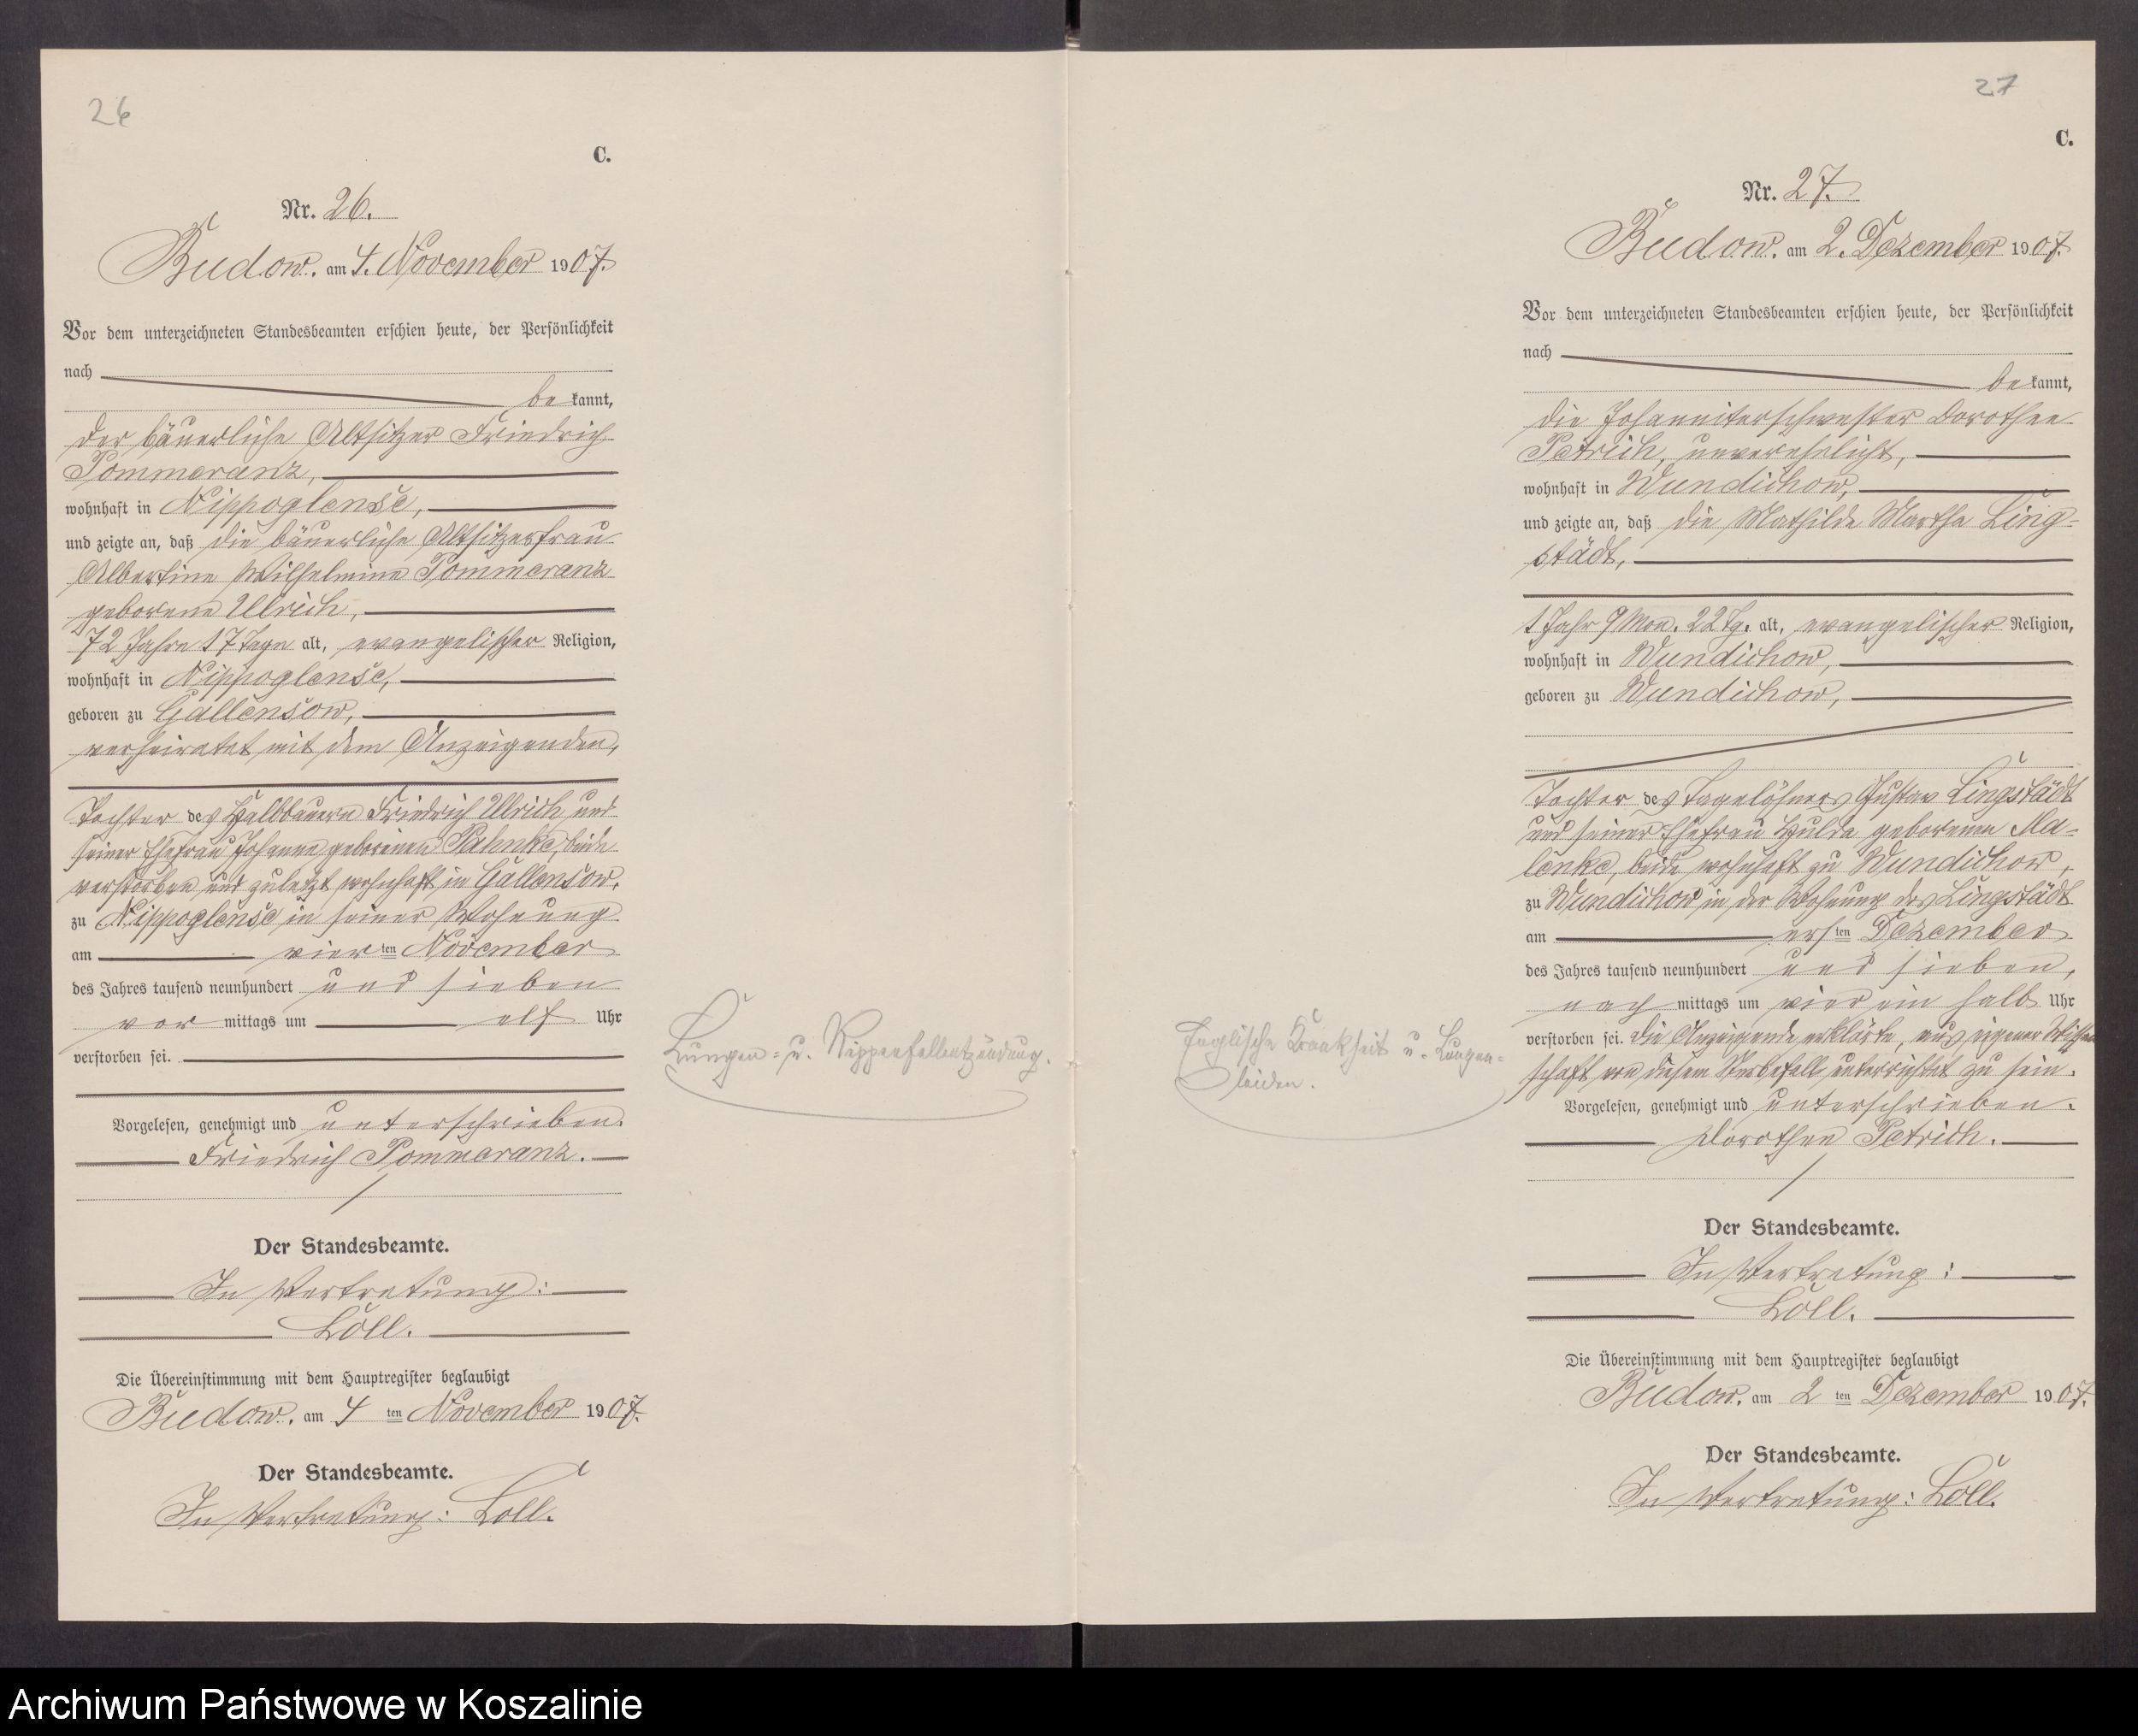 26
C.
Nr. 26.
Budow. am 4. November 1907.
Vor dem unterzeichneten Standesbeamten erschien heute, der Persönlichkeit
nach
be kannt,
der bäuerliche Altsitzer Friedrich
Pommeranz,
wohnhaft in Nippoglense,
und zeigte an, daß die bäuerliche Altsitzerfrau
Albertine Wilhelmine Pommeranz
geborene Ullrich,
72 Jahre 17 Tage alt, evangelischer Religion,
wohnhaft in Nippoglense,
geboren zu Gallensow,
verheiratet mit dem Anzeigenden,
Tochter des Halbbauern Friedrich Ullrich und
seiner Ehefrau Johanne geborenen Pahnke, beide
verstorben und zuletzt wohnhaft in Gallensow.
zu Nippoglense in seiner Wohnung
am vier ten November
des Jahres tausend neunhundert und sieben
vor mittags um elf Uhr
verstorben sei.
Lungen- u. Rippenfellentzündung.
Vorgelesen, genehmigt und unterschrieben.
Friedrich Pommeranz.
Der Standesbeamte.
In Vertretung:
Löll.
Die Übereinstimmung mit dem Hauptregister beglaubigt
Budow. am 4 ten November 1907.
Der Standesbeamte.
In Vertretung: Löll.
27
C.
Nr. 27.
Budow. am 2. Dezember 1907.
Vor dem unterzeichneten Standesbeamten erschien heute, der Persönlichkeit
nach
be kannt,
die Johanniterschwester Dorothee
Petrich, unverehelicht,
wohnhaft in Wundichow,
und zeigte an, daß die Mathilde Martha Ling-
städt,
1 Jahr 9 Mon. 22 Tg. alt, evangelischer Religion,
wohnhaft in Wundichow,
geboren zu Wundichow,
Tochter des Tagelöhners Gustav Lingstädt
und seiner Ehefrau Hulda geborenen Ma-
lenke, beide wohnhaft zu Wundichow,
zu Wundichow in der Wohnung des Lingstädt
am ers ten Dezember
des Jahres tausend neunhundert und sieben,
nach mittags um vier ein halb Uhr
verstorben sei. Die Anzeigende erklärte, aus eigener Wissen
schaft von diesem Sterbefall unterrichtet zu sein.
Englische Krankheit u. Lungen-
leiden.
Vorgelesen, genehmigt und unterschrieben.
Dorothee Petrich.
Der Standesbeamte.
In Vertretung:
Löll.
Die Übereinstimmung mit dem Hauptregister beglaubigt
Budow. am 2 ten Dezember 1907.
Der Standesbeamte.
In Vertretung: Löll.
Archiwum Państwowe w Koszalinie